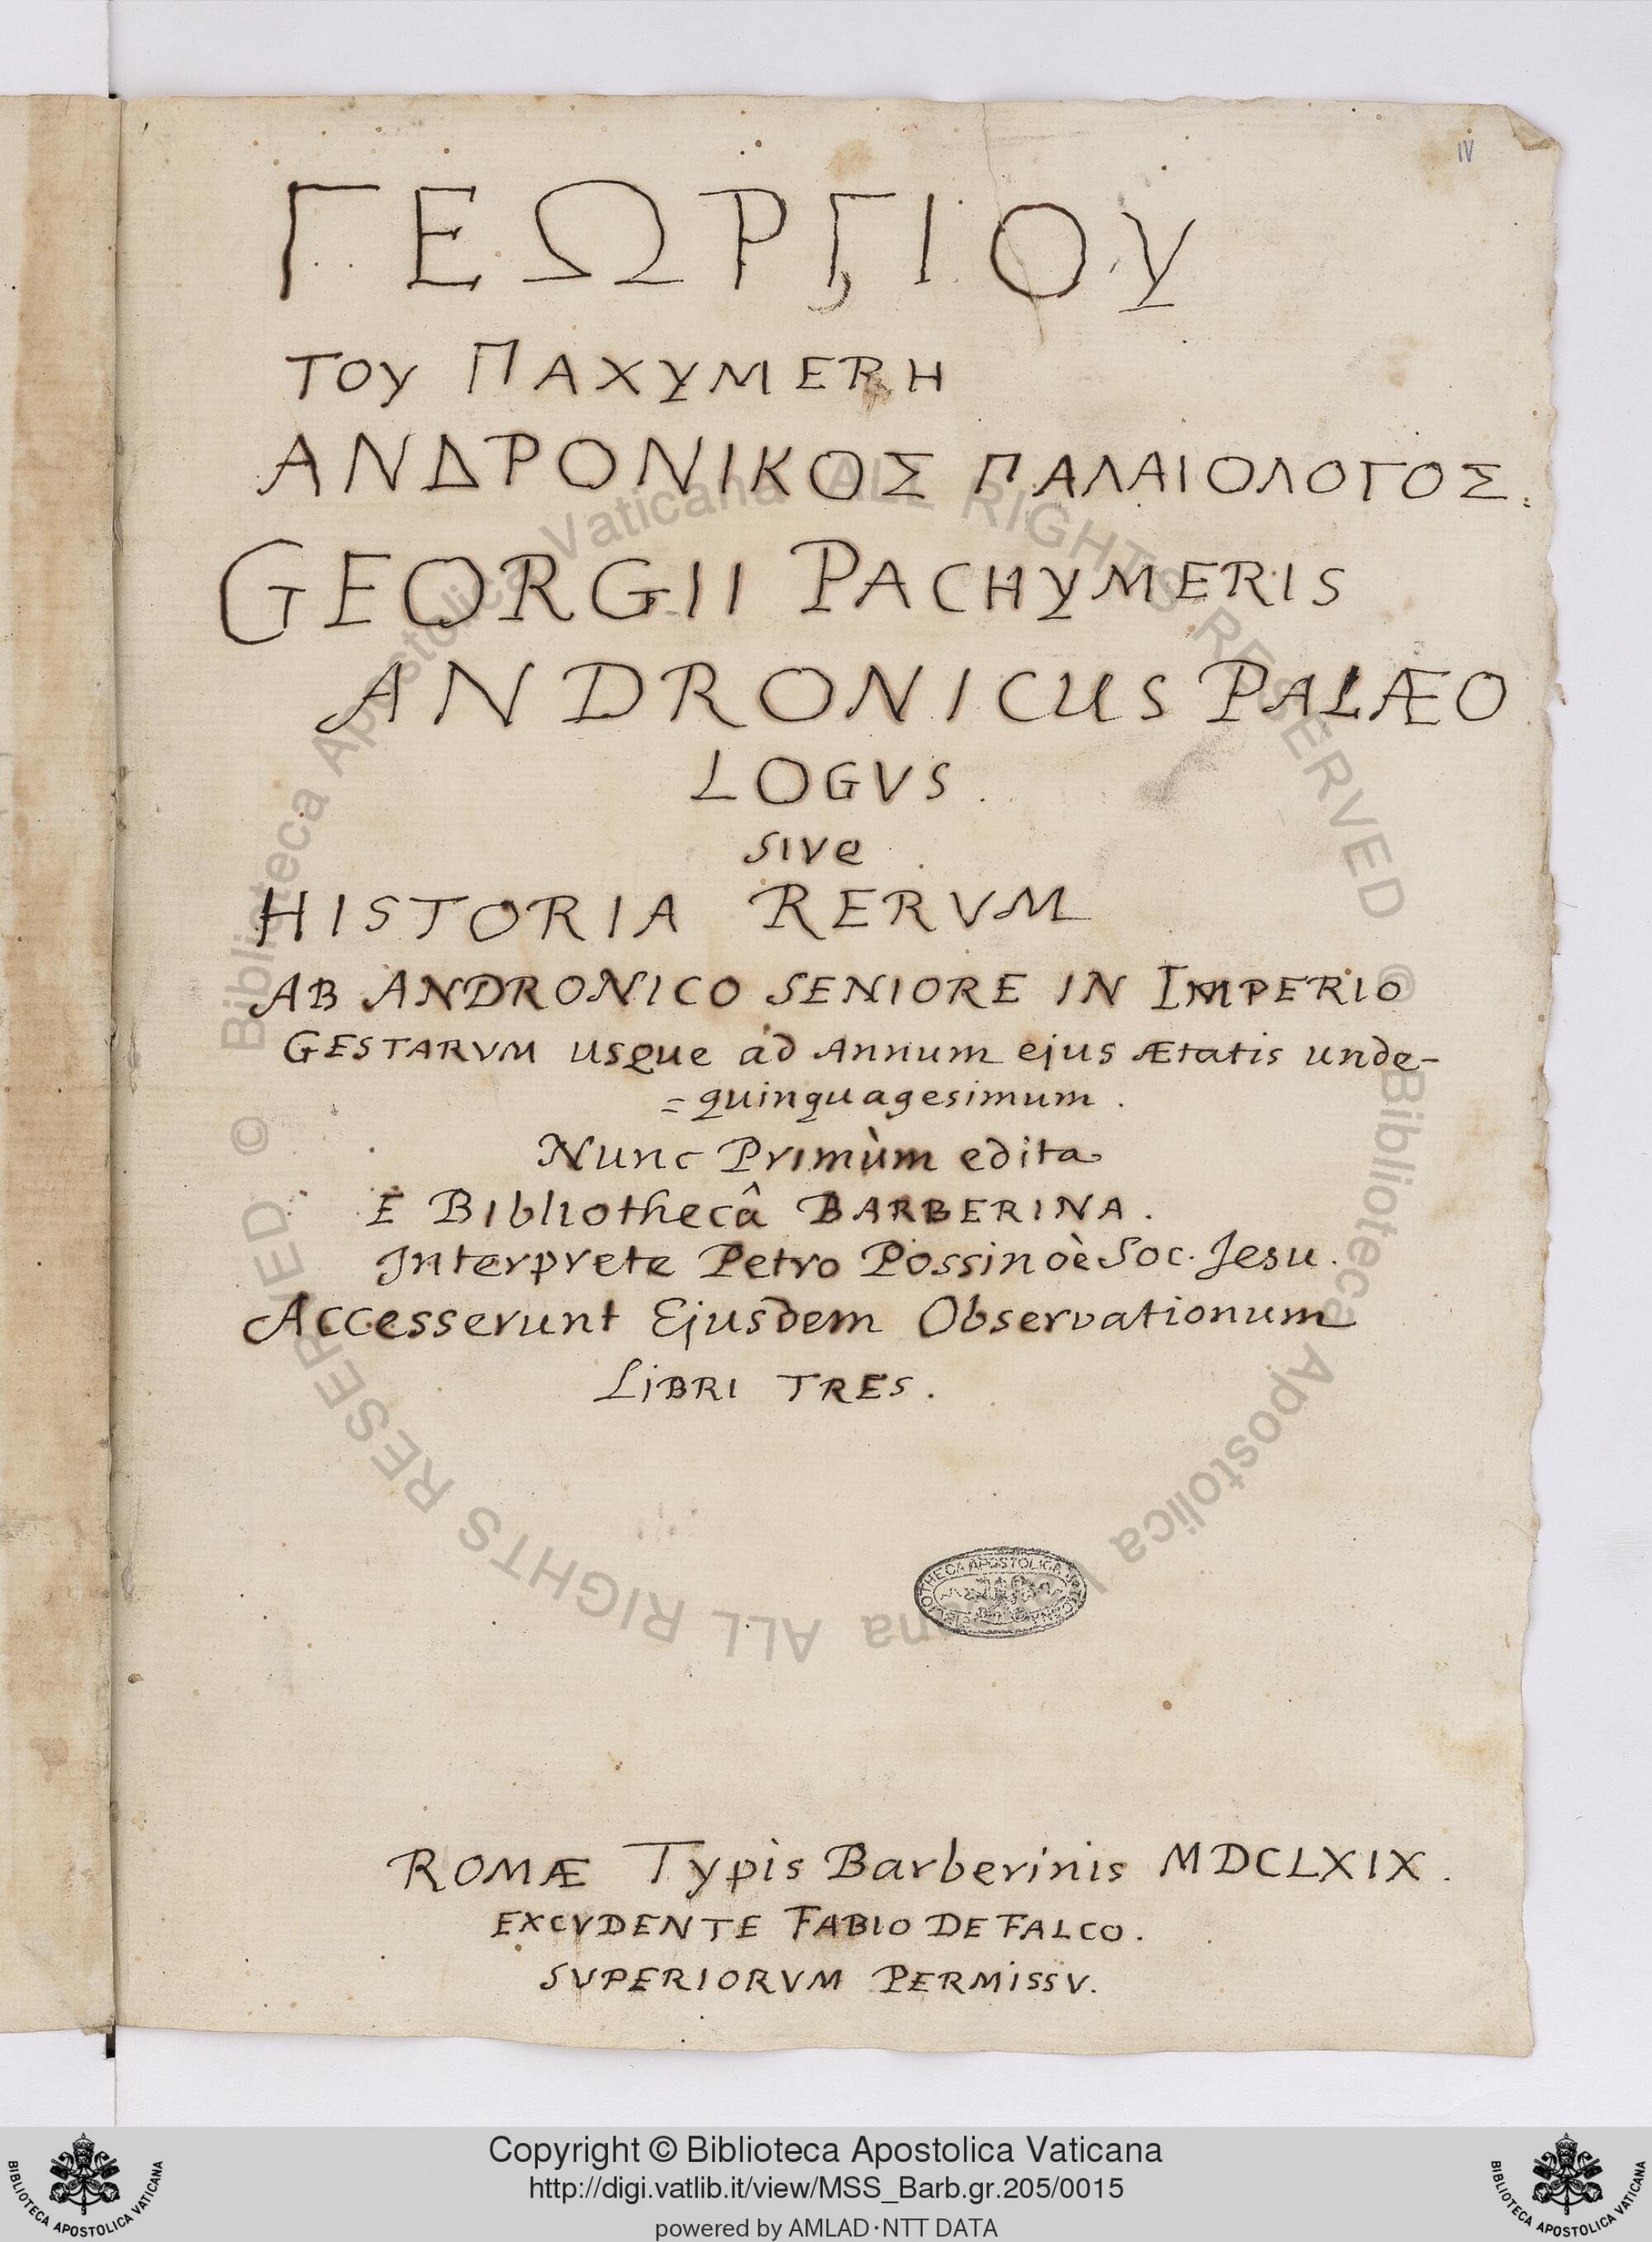 IV
ΓΕΩΡΓΙΟΥ
ΤΟΥ ΠΑΧΥΜΕRΗ
ΑΝΔΡΟΝΙΚΟΣ ΠΑΛΑΙΟΛΟΓΟΣ.
GEORGII PACHYMERIS
ANDRONICUS PALÆO
LOGVS.
sive
HISTORIA RERVM
AB ANDRONICO SENIORE IN IMPERIO
GESTARVM usque ad Annum ejus Ætatis unde-
=quinquagesimum.
Nunc Primùm edita
E Bibliothecâ BARBERINA.
Interprete Petro Possino è Soc. Jesu.
Accesserunt Ejusdem Observationum
LIBRI TRES.
BIBLIOTHECA APOSTOLICA VATICANA
ROMÆ Typis Barberinis MDCLXIX.
EXCVDENTE FABIO DE FALCO.
SVPERIORVM PERMISSV.
© Biblioteca Apostolica Vaticana ALL RIGHTS RESERVED © Biblioteca Apostolica Vaticana ALL RIGHTS RESERVED
Copyright © Biblioteca Apostolica Vaticana
http://digi.vatlib.it/view/MSS_Barb.gr.205/0015
powered by AMLAD·NTT DATA
BIBLIOTECA APOSTOLICA VATICANA
BIBLIOTECA APOSTOLICA VATICANA